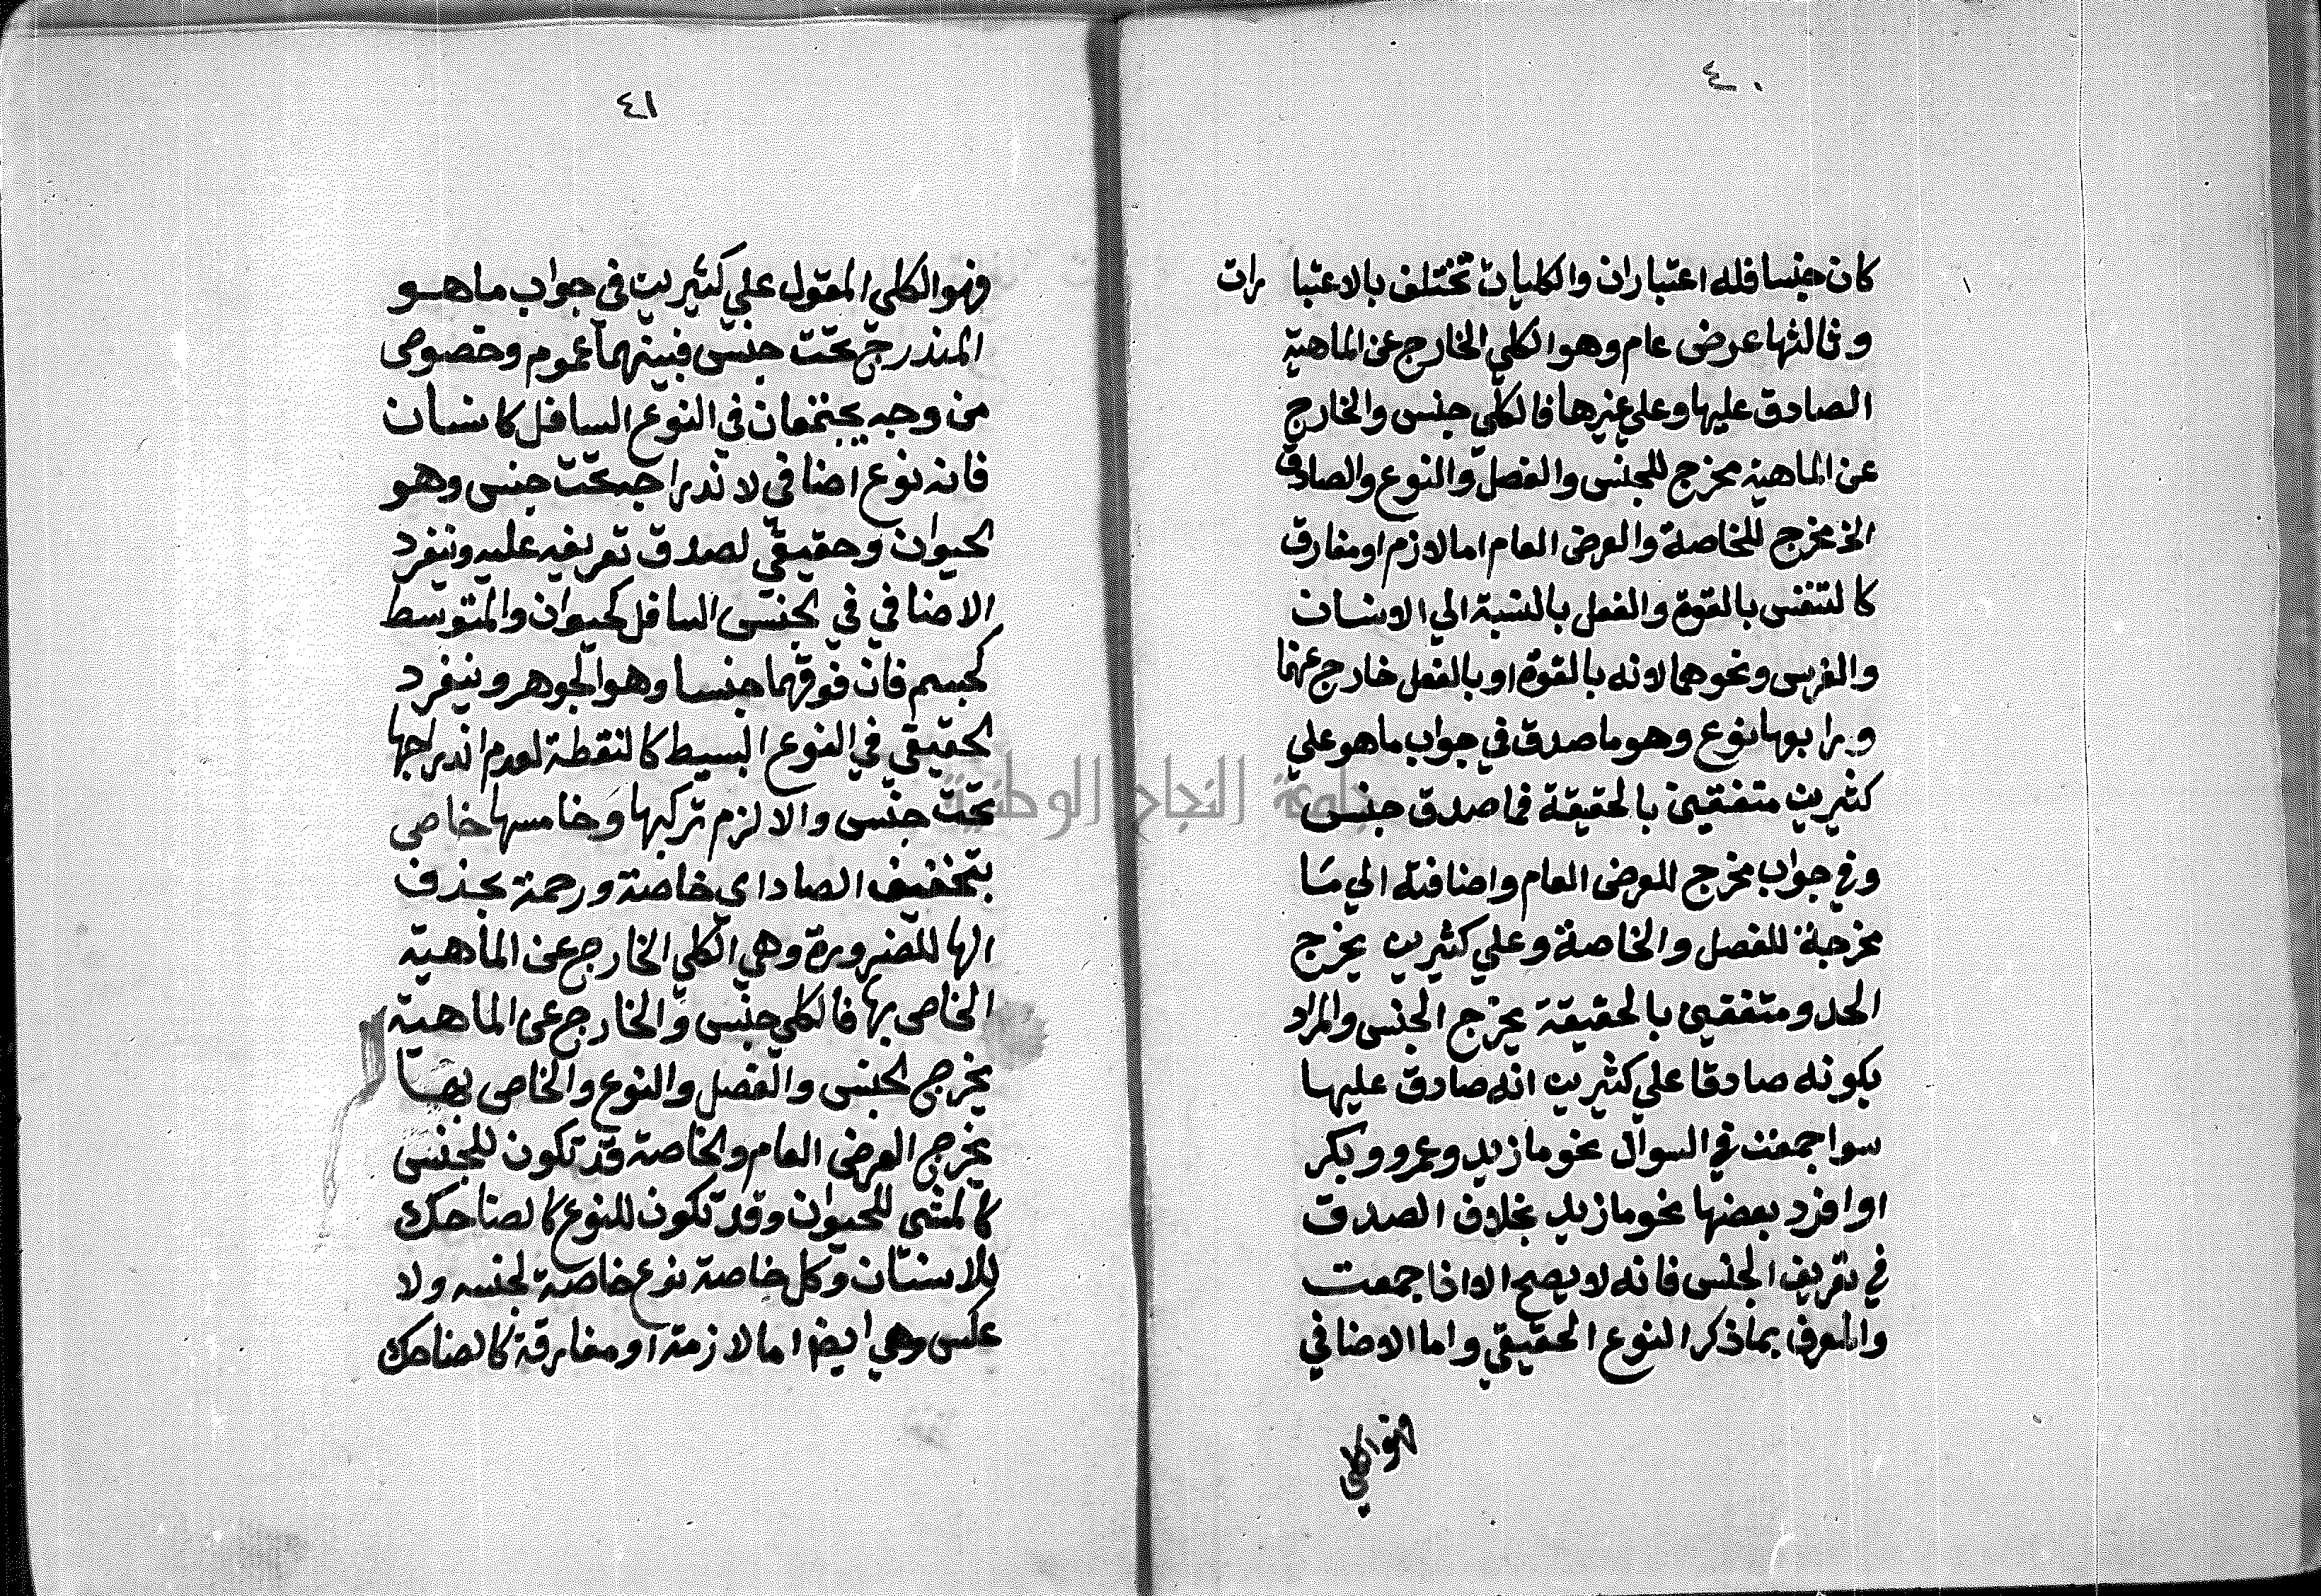 ٤٠
كان جنسا فله اعتباران والكليات تختلف بالاعتبا رات
وثالثها عرض عام وهو الكلي الخارج عن الماهية
الصادق عليها وعلى غيرها فالكلي جنس والخارج
عن الماهية مخرج للجنس والفصل والنوع والصادق
الخ مخرج للخاصة والعرض العام اما لازم او مفارق
كالتنفس بالقوة والفعل بالنسبة الي الانسان
والفرس ونحوهما لانه بالقوة او بالفعل خارج عنهما
ورابعها نوع وهو ما صدق في جواب ما هو علي
كثيرين متفقين بالحقيقة فما صدق جنس
وفي جواب مخرج للعرض العام واضافته الي ما
مخرجة للفصل والخاصة وعلي كثيرين يخرج
الحد ومتفقين بالحقيقة يخرج الجنس والمراد
بكونه صادقا علي كثيرين انه صادق عليها
سوا جمعت في السوال نحو ما زيد وعمرو وبكر
او افرد بعضها نحو ما زيد بخلاف الصدق
في تعريف الجنس فانه لا يصح الا اذا جمعت
والمعرف بما ذكر النوع الحقيقي واما الاضافي
فهو الكلي
٤١
فهو الكلي المقول علي كثيرين في جواب ما هو
المندرج تحت جنس فبينهما عموم وخصوص
من وجه يجتمعان في النوع السافل كانسان
فانه نوع اضافي لاندراجه تحت جنس وهو
لحيوان وحقيقي لصدق تعريفه عليه وينفرد
الاضافي في لجنس السافل كحيوان والمتوسط
كجسم فان فوقهما جنسا وهو الجوهر وينفرد
لحقيقي في النوع البسيط كالنقطة لعدم اندراجها
تحت جنس والا لزم تركبها وخامسها خاص
بتخفيف الصاد اي خاصة ورحمة بحذف
الها للضرورة وهي الكلي الخارج عن الماهية
الخاص بها فالكلي جنس والخارج عن الماهية
يخرج لجنس والفصل والنوع والخاص بها
يخرج العرض العام ولخاصة قد تكون للجنس
كالمشي للحيوان وقد تكون للنوع كالضاحك
للانسان وكل خاصة نوع خاصة لجنسه ولا
عكس وهي ايضا اما لازمة او مفارقة كالضاحك
جامعة النجاح الوطنية